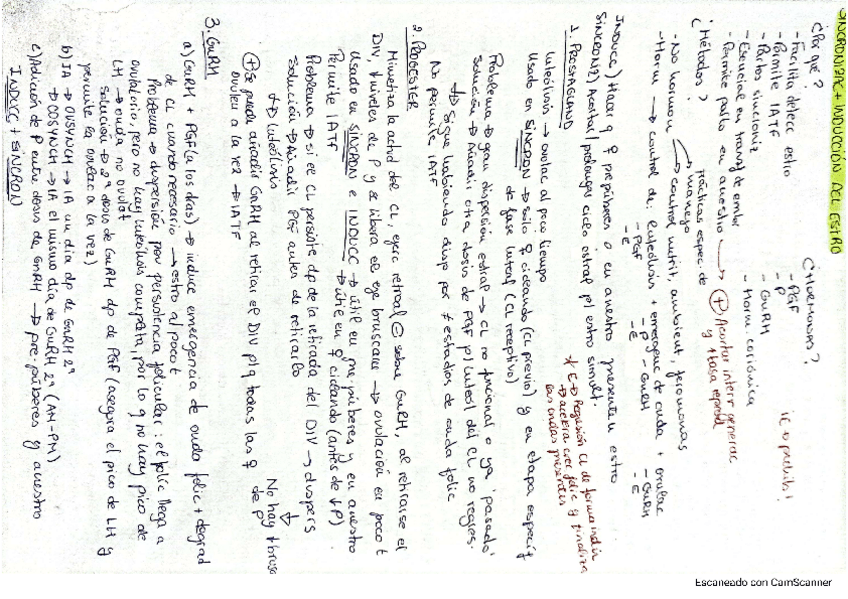 SINCRONIZAC + INDUCCIÓN DEL ESTRO
¿Por qué?
- Facilita detecc estro
- Permite IATF
- Partos sincroniz
- Esencial en transf de embr
- Permite parto en anestro → ⊕ Acortar interv generac y ↑ tasa reprod
¿Hormonas?
- PGF
- P
- GnRH
- Horm coriónica
¿Métodos?
- No hormon → control nutrit, ambient, feromonas
→ manejo
prácticas espec de
- Horm → control de: luteólisis + emergenc de onda + ovulac
- PGF - P - GnRH
- E - E - GnRH
- E
INDUCC) Hacer q ♀ prepúberes o en anestro presenten estro
SINCRONIZ) Acortar/prolongar ciclo estral p/ estro simult.
1. PROSTAGLAND
* E → Regresión CL de forma indir
→ acelera crec folic y
las ondas presentes
luteólisis → ovulac al poco tiempo
Usado en SINCRON → solo ♀ ciclando (CL previo) y en etapa específ
de fase luteal (CL receptivo)
Problema → gran dispersión estral → CL no funcional o ya 'pasado'
Solución → Añadir otra dosis de PGF p/ luteol del CL no regres.
↳ Sigue habiendo disp por ≠ estados de onda folic
No permite IATF
2. PROGESTER
Mimetiza la activ del CL, ejerc retroal ⊖ sobre GnRH, al retirarse el
DIV, ↓ niveles de P y se libera el eje bruscam → ovulación en poco t
Usado en SINCRON e INDUCC → útil en ♀ prepúberes y en anestro
Permite IATF → útil en ♀ ciclando (antes de ↓P)
Problema → si el CL persiste dp de la retirada del DIV → dispers
Solución → Añadir PGF antes de retirarlo
↳ luteólisis
No hay ↓ brusc de P
⊕ Se puede añadir GnRH al retirar el DIV p/ q todas las ♀
ovulen a la vez → IATF
3. GnRH
a) GnRH + PGF (a los días) → induce emergencia de onda folic + degrad
de CL cuando necesario → estro al poco t
Problema → dispersión por persistencia folicular: el folic llega a
ovulatorio, pero no hay luteólisis completa, por lo q no hay pico de
LH → onda no ovulat
Solución → 2ª dosis de GnRH dp de PGF (asegura el pico de LH y
permite la ovulac a la vez)
b) IA → OVSYNCH → IA un día dp de GnRH 2ª
→ COSYNCH → IA el mismo día de GnRH 2ª (AM-PM)
c) Adición de P entre dosis de GnRH → prepúberes y anestro
INDUCC + SINCRON
Escaneado con CamScanner